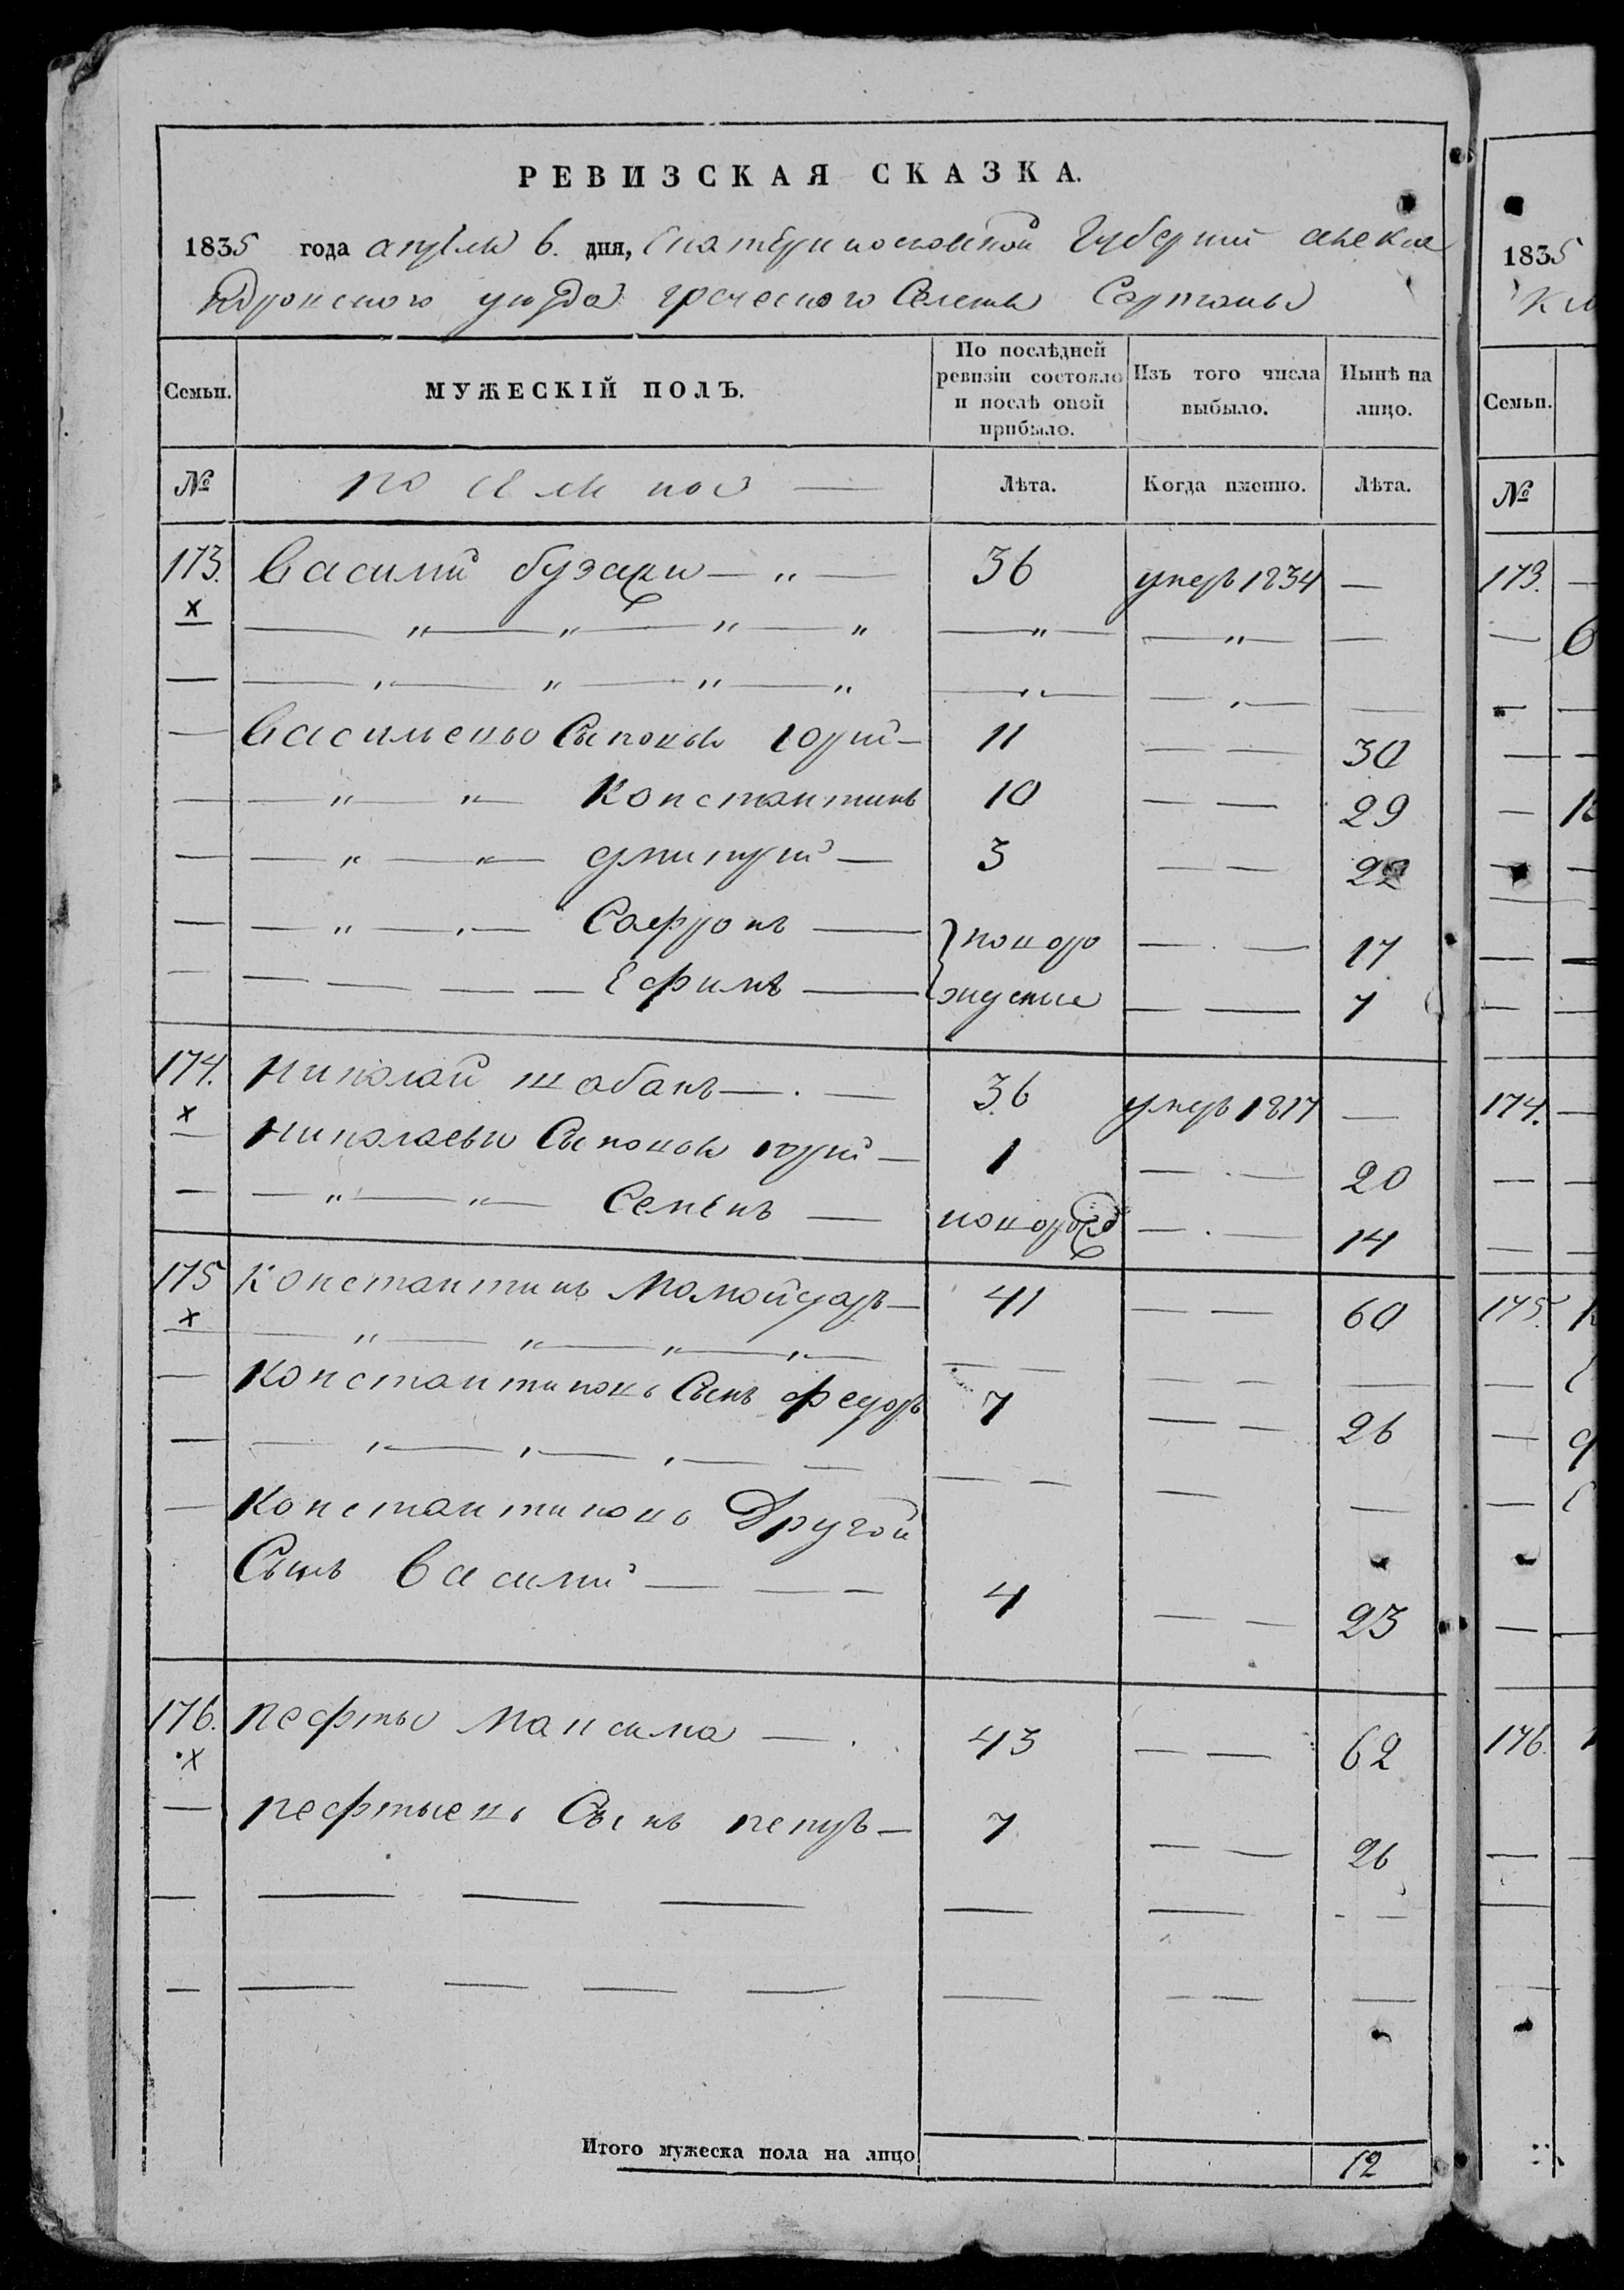 РЕВИЗСКАЯ СКАЗКА.
1835 года апреля 6. дня, Екатеринославской Губернии алекса
ндровского уезда греческого Селения Сартаны
Семьи. МУЖЕСКІЙ ПОЛЪ. По послѣдней ревизіи состояло и послѣ оной прибыло. Изъ того числа выбыло. Нынѣ на лицо.
№ Лѣта. Когда именно. Лѣта.
173. Василий бузари — „ — 36 умеръ 1834 —
х
Васильевы Сыновья Юрий — 11 — — 30
— „ — „ — Константинъ 10 — — 29
— „ — „ — дмитрий — 3 — — 22
— „ — „ — Сафронъ — } новоро — 17
— — — — Ефимъ — } жденые — 7
174. николай шабанъ — 36 умеръ 1817 —
х николаевы Сыновья юрий — 1 — 20
— „ — „ — Семенъ — новорожд — 14
175 Константинъ — 41 — — 60
х
Константиновъ Сынъ федоръ 7 — — 26
Константиновъ Другой
Сынъ Василий — — — 4 — — 23
176. пефты — 43 — — 62
х
пефтыевъ Сынъ петръ — 7 — — 26
Итого мужеска пола на лицо 12
1835
Семьи.
№
173.
174.
175.
176.